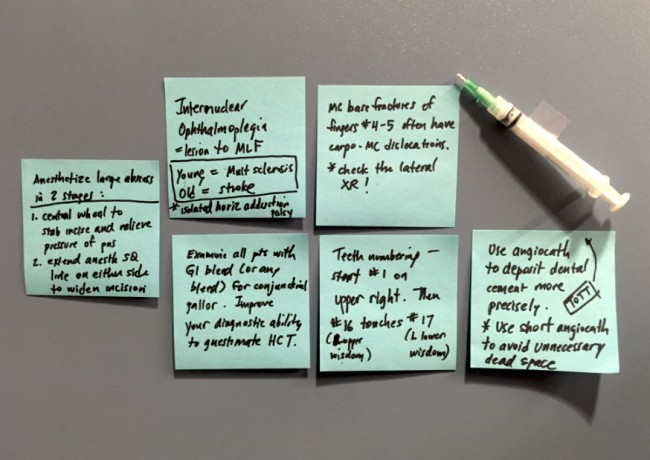 Anesthetize large abscess
in 2 stages:
1. central wheal to
stab incise and relieve
pressure of pus
2. extend anesth SQ
line on either side
to widen incision
Internuclear
Ophthalmoplegia
= lesion to MLF
Young = Mult sclerosis
Old = stroke
* isolated horiz adduction
palsy
MC base fractures of
fingers #4-5 often have
carpo-MC dislocations.
* check the lateral
XR!
Examine all pts with
GI bleed (or any
bleed) for conjunctival
pallor. Improve
your diagnostic ability
to guestimate HCT.
Teeth numbering -
start #1 on
upper right. Then
#16 touches #17
(upper wisdom)
(L lower wisdom)
Use angiocath
to deposit dental
cement more
precisely.
TOTT
* Use short angiocath
to avoid unnecessary
dead space